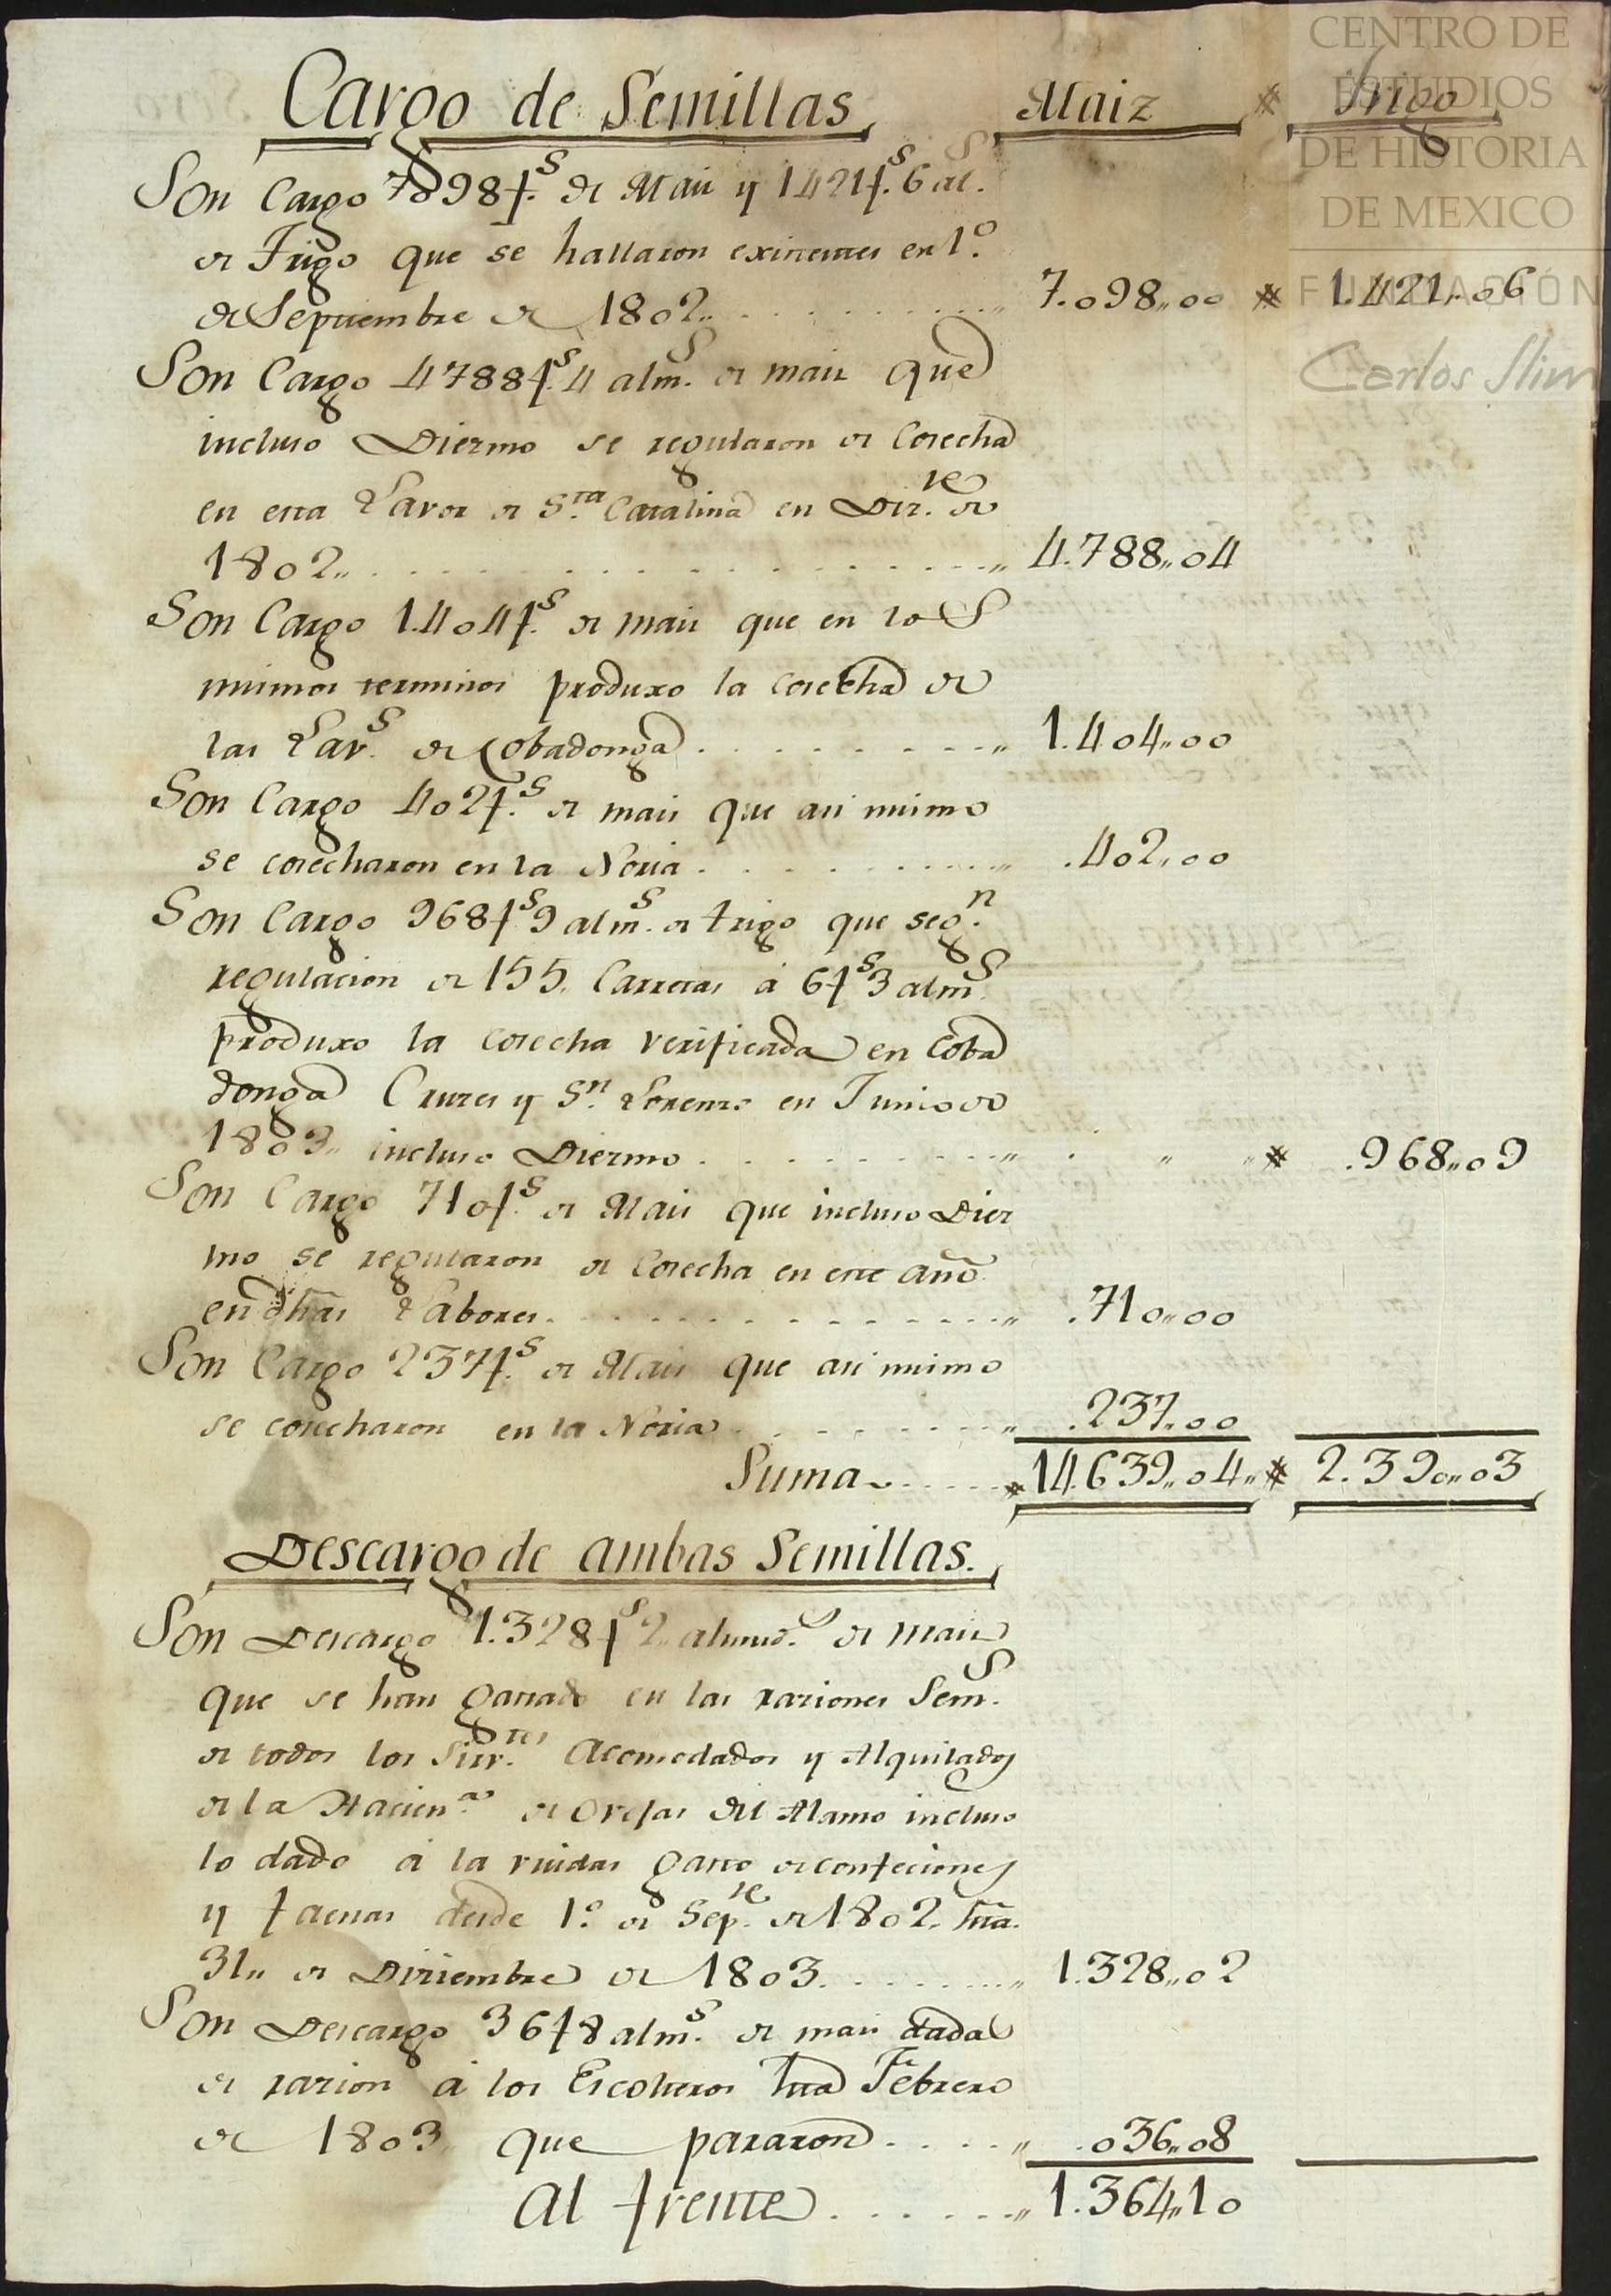 Cargo de Semillas, Maiz # Trigo
CENTRO DE
ESTUDIOS
DE HISTORIA
DE MEXICO
FUNDACIÓN
Carlos Slim
Son Cargo 7098 f.s de Mais y 1421 f.s 6 al.s
de Trigo que se hallaron existentes en 1.o
de Septiembre de 1802,, . . . . . . . . . ,, 7.098,,00 # 1.421,,06
Son Cargo 4788 f.s 4 alm.s de mais que
incluso Diezmo se regularon de Cosecha
en esta Lavor de S.ta Catalina en Diz.re de
1802,, . . . . . . . . . . . . . . . ,, 4.788,,04
Son Cargo 1.404 f.s de mais que en los
mismos terminos produxo la cosecha de
las Lav.s de Cobadonga . . . . . . . . . ,, 1.404,,00
Son Cargo 402 f.s de mais que asi mismo
se cosecharon en la Noria . . . . . . . . ,, .402,,00
Son Cargo 968 f.s 9 alm.s de trigo que seg.n
regulacion de 155. Carretas á 6 f.s 3 alm.s
produxo la cosecha verificada en Coba
donga Cruces y S.n Lorenzo en Junio de
1803,, incluso Diezmo . . . . . . . . . ,, . ,, ,, # .968,,09
Son Cargo 710 f.s de Mais que incluso Diez
mo se regularon de Cosecha en este año
en dhãs Labores . . . . . . . . . . . . ,, .710,,00
Son Cargo 237 f.s de Mais que asi mismo
se cosecharon en la Noria . . . . . . . . ,, .237,,00
Suma . . . . . # 14.639,,04,, # 2.390,,03
Descargo de ambas Semillas.
Son Descargo 1.328 f.s 2,, almud.s de mais
que se han gastado en las raziones Sem.s
de todos los Sirv.tes Acomodados y Alquilados
de la Hacien.a de Orejas del Alamo incluso
lo dado á la viudas gasto de confeciones
y faenas desde 1.o de Sep.re de 1802,, hta.
31,, de Diziembre de 1803 . . . . . . . ,, 1.328,,02
Son Descargo 36 f 8 alm.s de mais dadas
de razion á los Escolteros hta Febrero
de 1803,, que pararon . . . . ,, .036,,08
Al frente . . . . . . ,, 1.364,,10